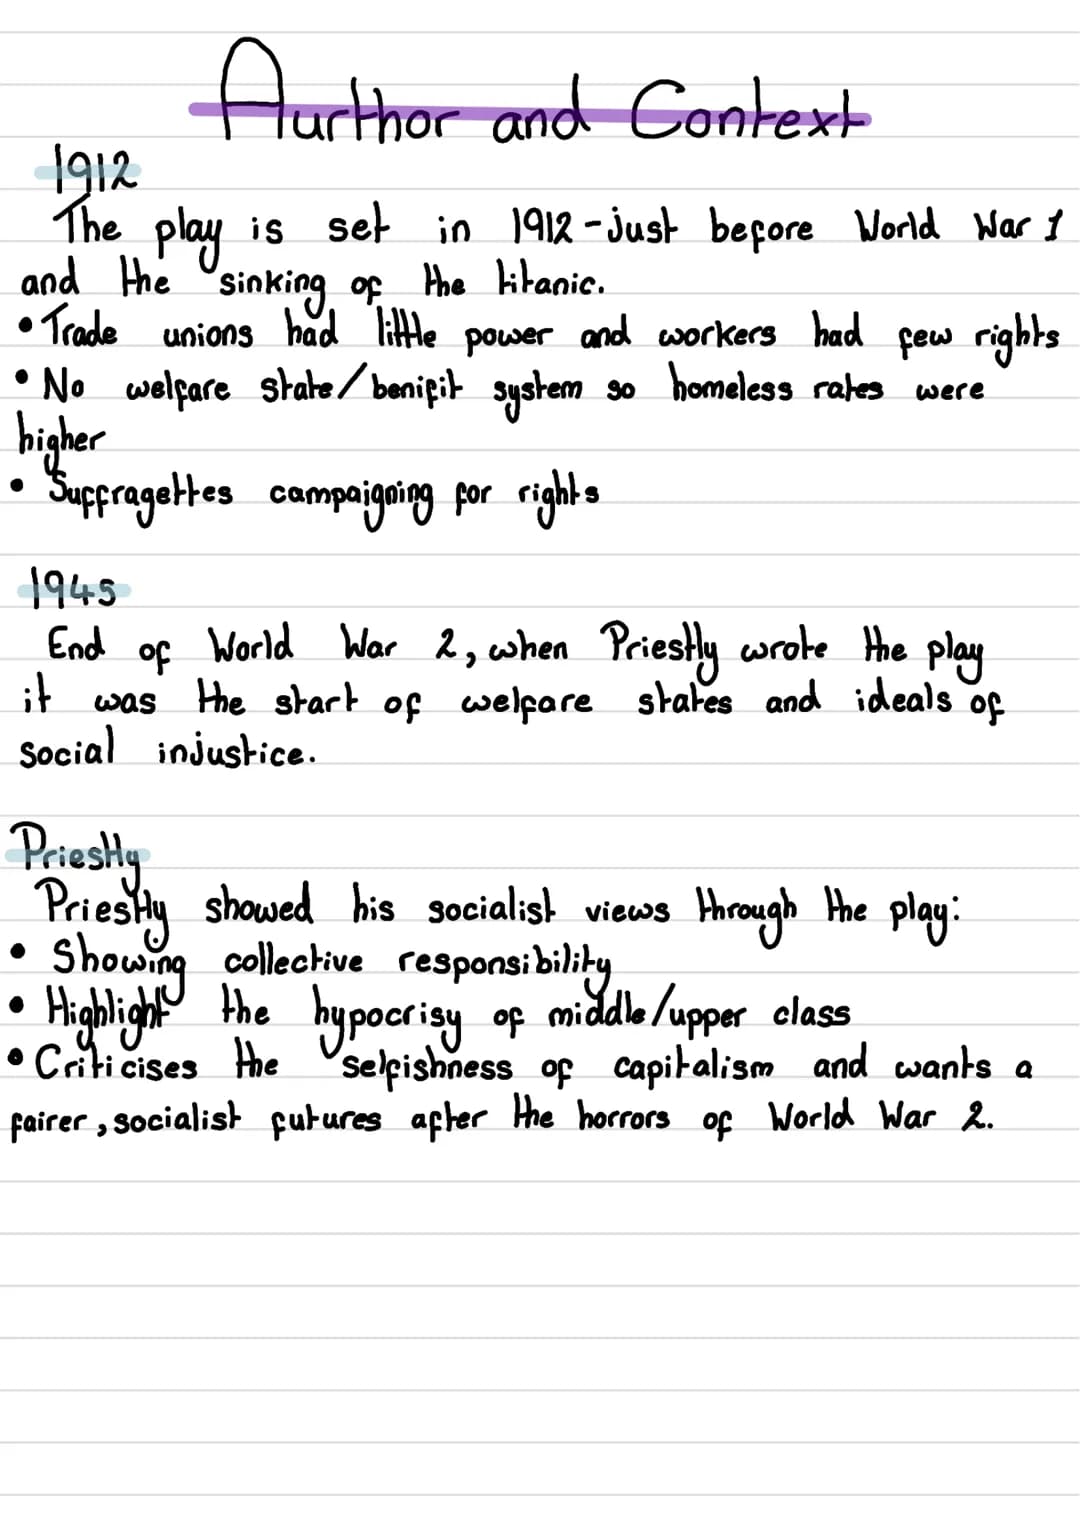 Aurthor and Context
1912
The play is set in 1912 - just before World War 1
and the sinking of the titanic.
• Trade unions had little power and workers had few rights
• No welfare state/benifit system so homeless rates were
higher
• Suffragettes campaigning for rights
1945
End of World War 2, when Priestly wrote the play
it was the start of welfare states and ideals of
social injustice.
Priestly
Priestly showed his socialist views through the play:
• Showing collective responsibility
• Highlight the hypocrisy of middle/upper class
• Criticises the selfishness of capitalism and wants a
fairer, socialist futures after the horrors of World War 2.